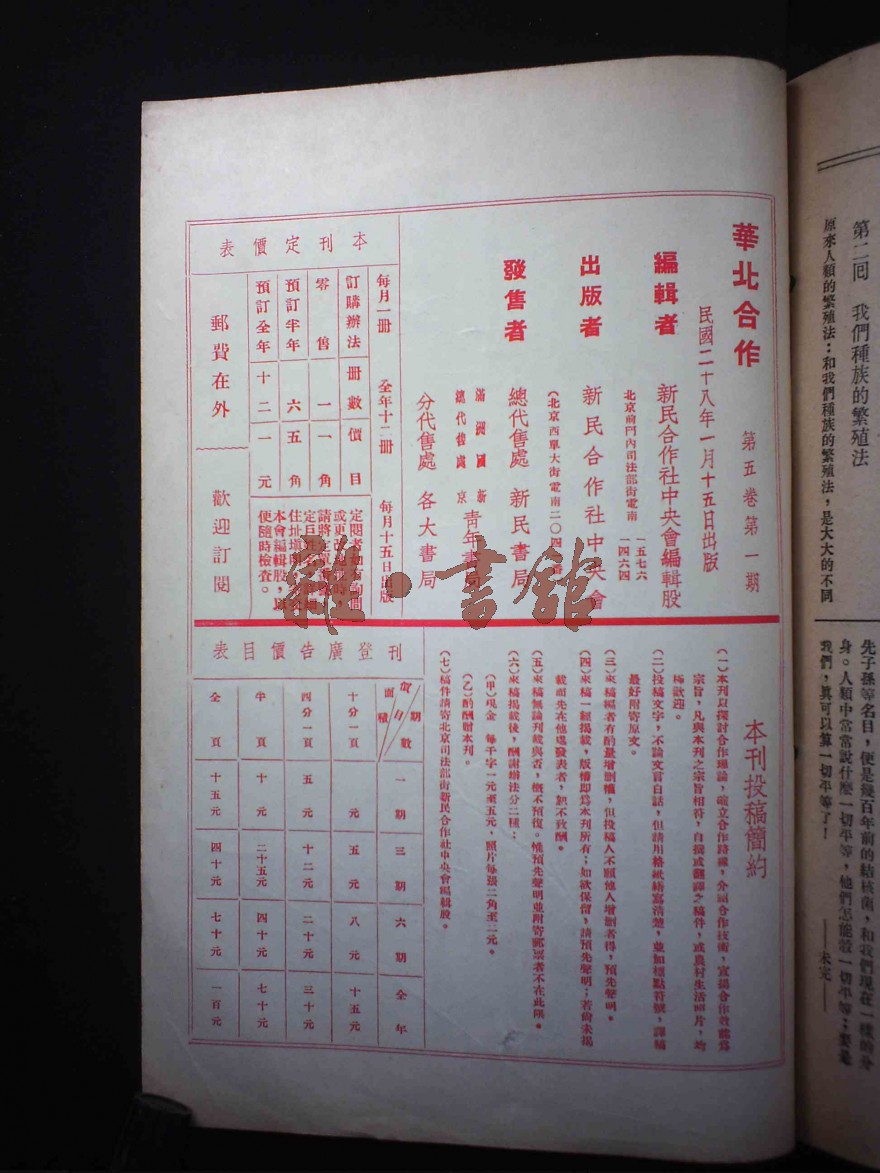 華北合作
第五卷第一期
民國二十八年一月十五日出版
編輯者
新民合作社中央會編輯股
北京前門內司法部街電南
一五七六
一四六四
出版者
新民合作社中央會
(北京西單大街電南二〇四
發售者
總代售處 新民書局
滿洲國新京
總代售處
青年書局
分代售處 各大書局
本刊定價表
每月一冊 全年十二冊 每月十五日出版
訂購辦法 冊數 價目
零售 一 一角
預訂半年 六 五角
預訂全年 十二 一元
郵費在外
歡迎訂閱
定閱者如有
或更改
請將定單
定戶姓名
住址
本會編輯股,以
便隨時檢查。
本刊投稿簡約
(一)本刊以探討合作理論,確立合作路線,介紹合作技術,宣揚合作效能為
宗旨,凡與本刊之宗旨相符,自撰或翻譯之稿件,或農村生活照片,均
極歡迎。
(二)投稿文字,不論文言白話,但請用格紙繕寫清楚,並加標點符號,譯稿
最好附寄原文。
(三)來稿編者有酌量增刪權,但投稿人不願他人增刪者得,預先聲明。
(四)來稿一經揭載,版權即為本刊所有;如欲保留,請預先聲明;若尚未揭
載而先在他處發表者,恕不致酬。
(五)來稿無論刊載與否,概不預復。惟預先聲明並附寄郵票者不在此限。
(六)來稿揭載後,酬謝辦法分二種:
(甲)現金 每千字一元至五元,照片每張二角至二元。
(乙)酌酬贈本刊。
(七)稿件請寄北京司法部街新民合作社中央會編輯股。
刊登廣告價目表
面積 期數 一期 三期 六期 全年
十分一頁 元 五元 八元 十五元
四分一頁 五元 十二元 二十元 三十元
半頁 十元 二十五元 四十元 七十元
全頁 十五元 四十元 七十元 一百元
雜·書館
第二回 我們種族的繁殖法
原來人類的繁殖法:和我們種族的繁殖法,是大大的不同
先子孫等名目,便是幾百年前的結核菌,和我們現在一樣的分
身。人類中常常說什麼一切平等,他們怎能彀一切平等;要是
我們,真可以算一切平等了!
——未完——